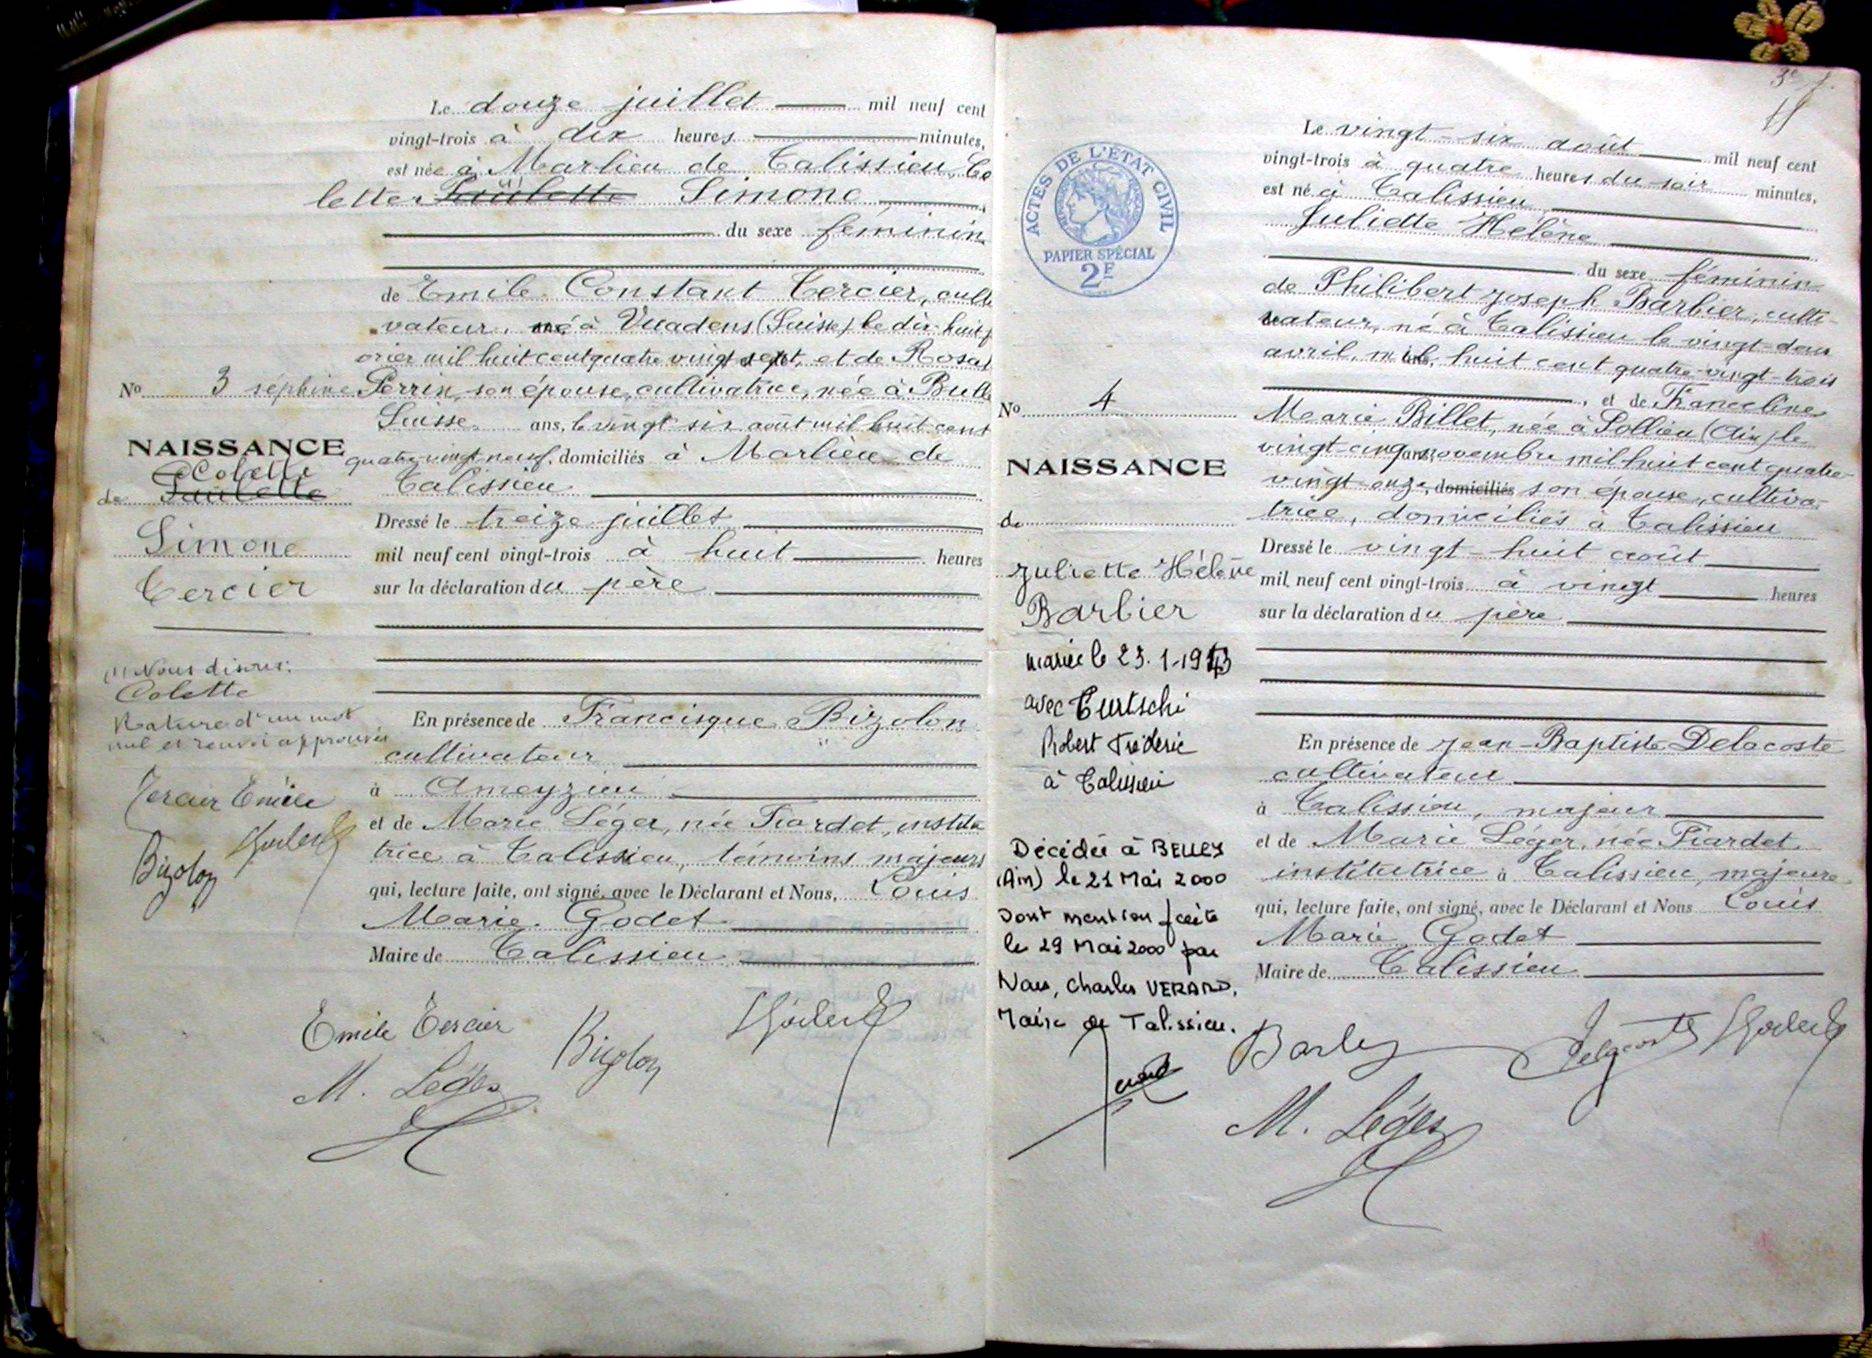 Le douze juillet mil neuf cent
vingt-trois à dix heures minutes,
est née à Marlieu de Talissieu, Co
lette Paulette Simone
(1)
du sexe féminin
de Emile Constant Tercier, culti
vateur, né à Vuadens (Suisse) le dix-huit f
évrier mil huit cent quatre vingt sept, et de Rosa J
No 3 séphine Perrin, son épouse, cultivatrice, née à Bulle
Suisse ans, le vingt six août mil huit cent
NAISSANCE quatre vingt neuf, domiciliés à Marlieu de
Colette
de Paulette Talissieu
Simone
Tercier
Dressé le treize juillet
mil neuf cent vingt-trois à huit heures
sur la déclaration du père
(1) Nous disons:
Colette
Rature d'un mot
nul et renvoi approuvés
Tercier Emile
Bizolon
En présence de Francisque Bizolon
cultivateur
à Ameyzieu
et de Marie Léger, née Fiardet, institu
trice à Talissieu, témoins majeurs
qui, lecture faite, ont signé avec le Déclarant et Nous, Louis
Marie Godet
Maire de Talissieu
Emile Tercier Bizolon
M. Léger
3e f.
ACTES DE L'ÉTAT CIVIL
PAPIER SPÉCIAL
2F
Le vingt-six août mil neuf cent
vingt-trois à quatre heures du soir minutes,
est né à Talissieu
Juliette Hélène
du sexe féminin
de Philibert Joseph Barbier, culti-
vateur, né à Talissieu le vingt-deux
avril mil huit cent quatre-vingt-trois
, et de Franceline
Marie Billet, née à Lollieu (Ain) le
vingt-cinq novembre mil huit cent quatre-
vingt-onze, domiciliés son épouse, cultiva-
trice, domiciliés à Talissieu
Dressé le vingt-huit août
mil neuf cent vingt-trois à vingt heures
sur la déclaration du père
No 4
NAISSANCE
de
Juliette Hélène
Barbier
mariée le 23.1-1943
avec Turtschi
Robert Fréderic
à Talissieu
Décédée à BELLEY
(Ain) le 21 Mai 2000
Dont mention faite
le 29 Mai 2000 par
Nous, Charles VERARD,
Maire de Talissieu.
En présence de Jean-Baptiste Delacoste
cultivateur
à Talissieu, majeur
et de Marie Léger, née Fiardet
institutrice à Talissieu, majeure
qui, lecture faite, ont signé, avec le Déclarant et Nous Louis
Marie Godet
Maire de Talissieu
Delacoste
M. Léger